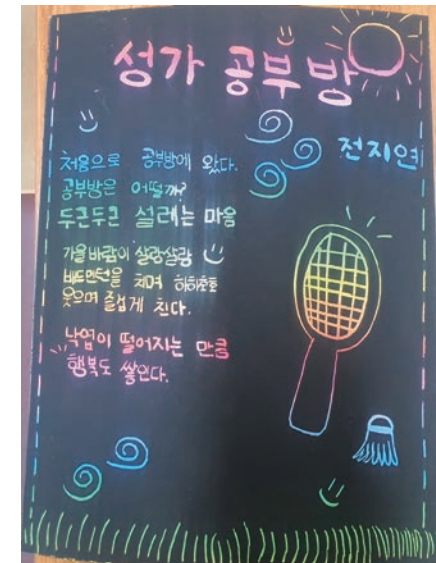 성가 공부방
전지연
처음으로 공부방에 왔다.
공부방은 어떨까?
두근두근 설레는 마음
가을바람이 살랑살랑
배드민턴을 치며 하하호호
웃으며 즐겁게 친다.
낙엽이 떨어지는 만큼
행복도 쌓인다.